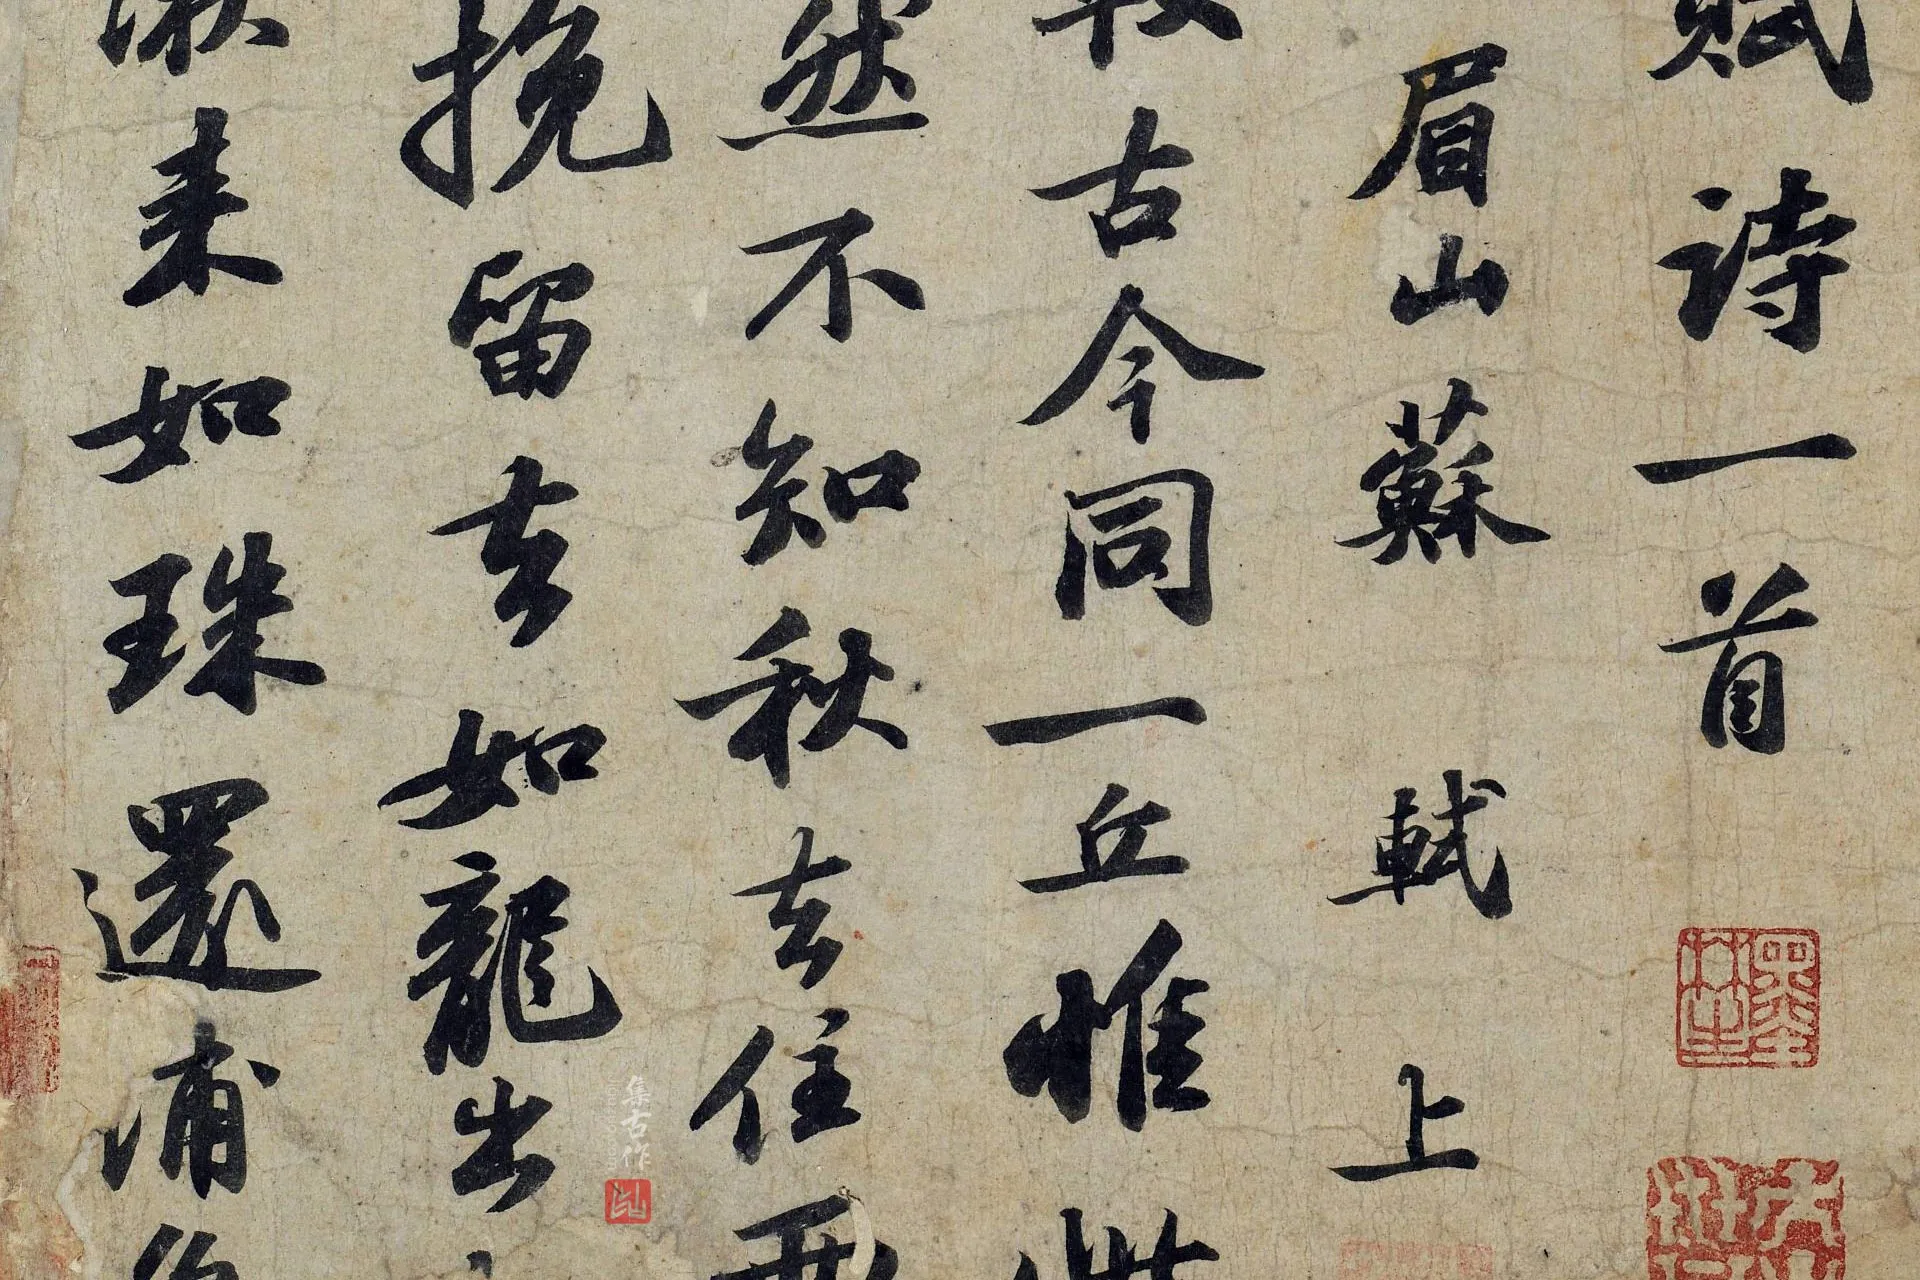 賦詩一首
眉山蘇軾上
較古今同一丘惟此
然不知秋去住兩
挽留去如龍出
湫来如珠還浦魚
集古作